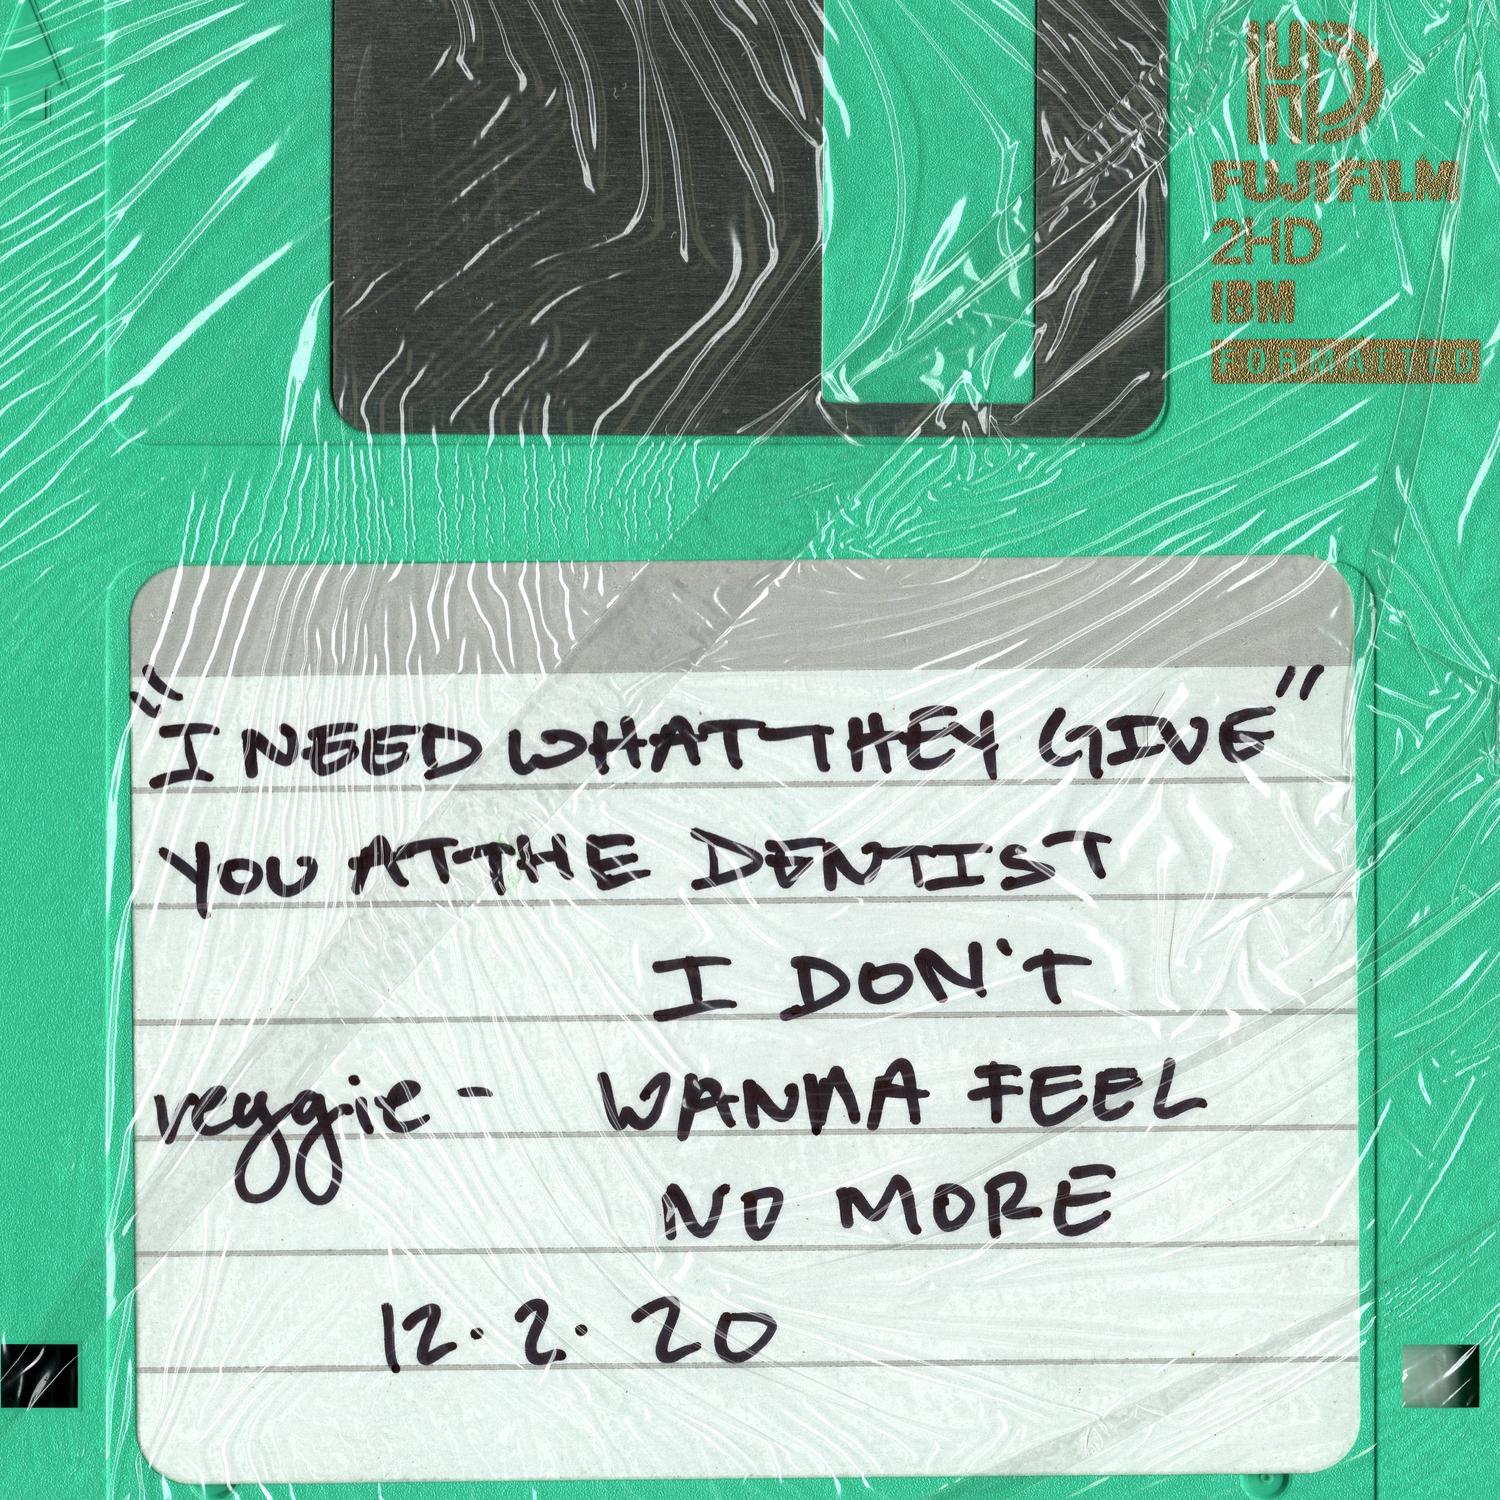 HD
FUJIFILM
2HD
IBM
FORMATTED
"I NEED WHAT THEY GIVE"
YOU AT THE DENTIST
I DON'T
veggie - WANNA FEEL
NO MORE
12.2.20